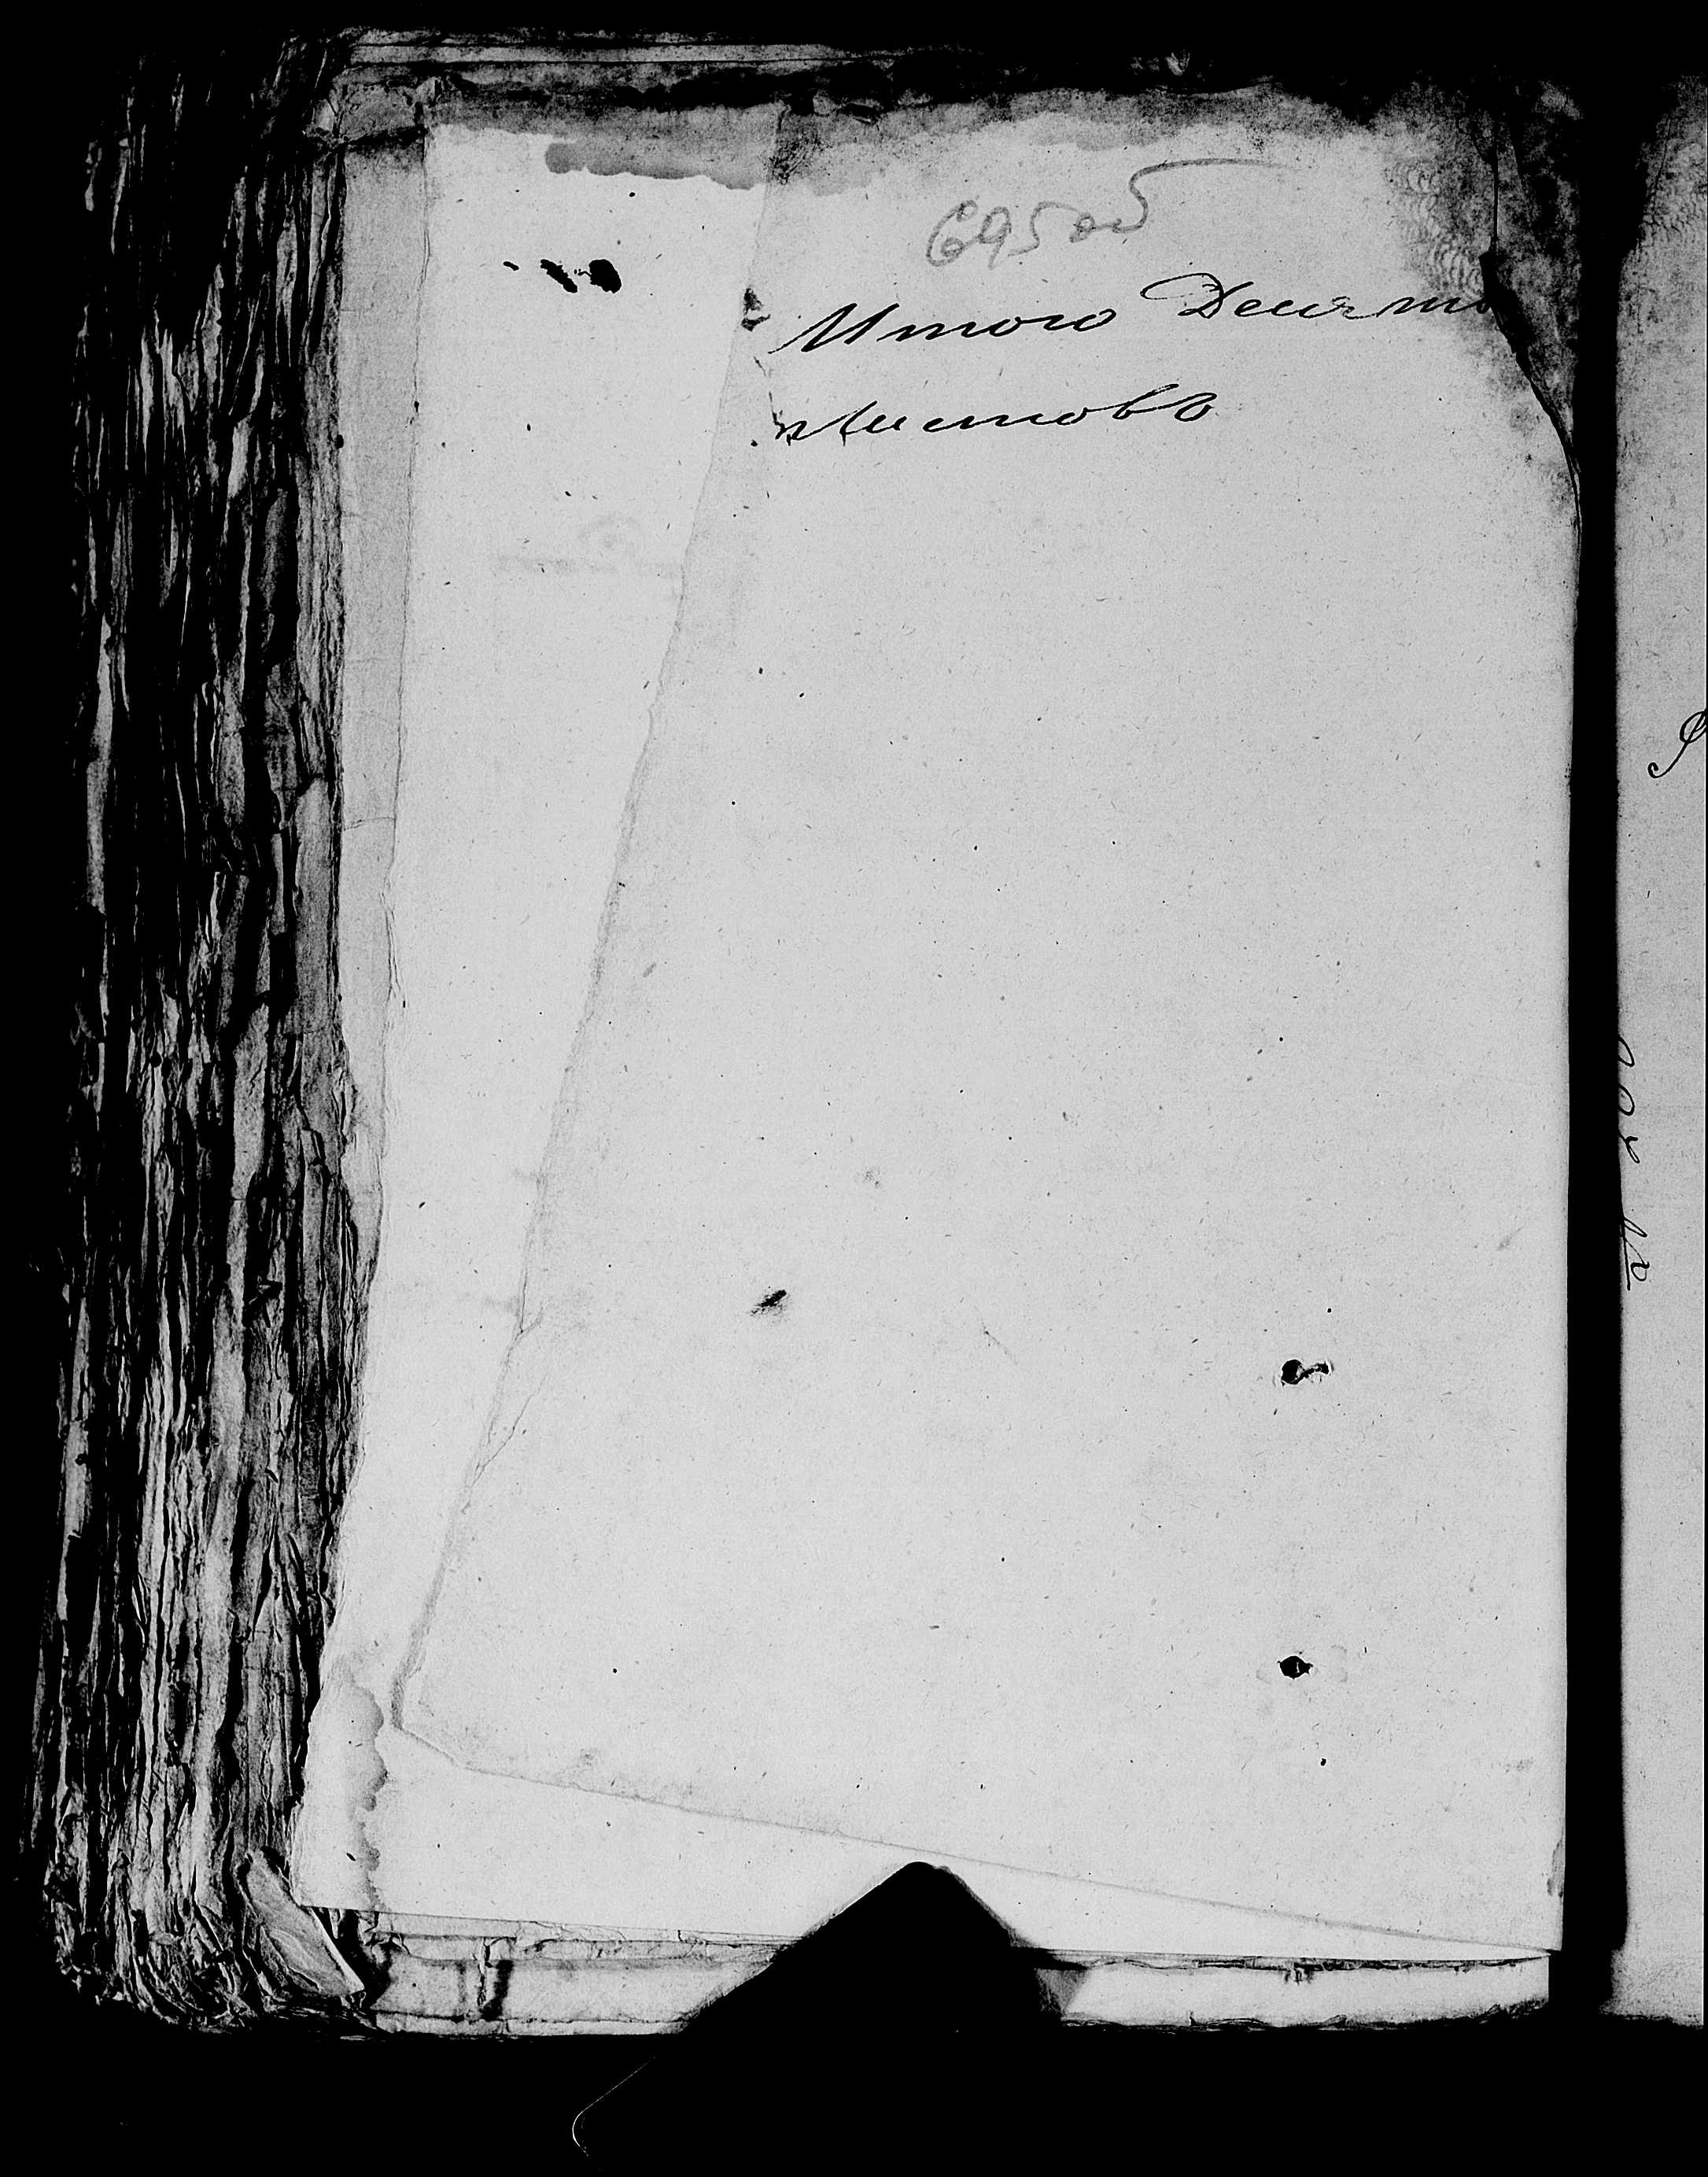 695 об
Итого Десять
листовъ